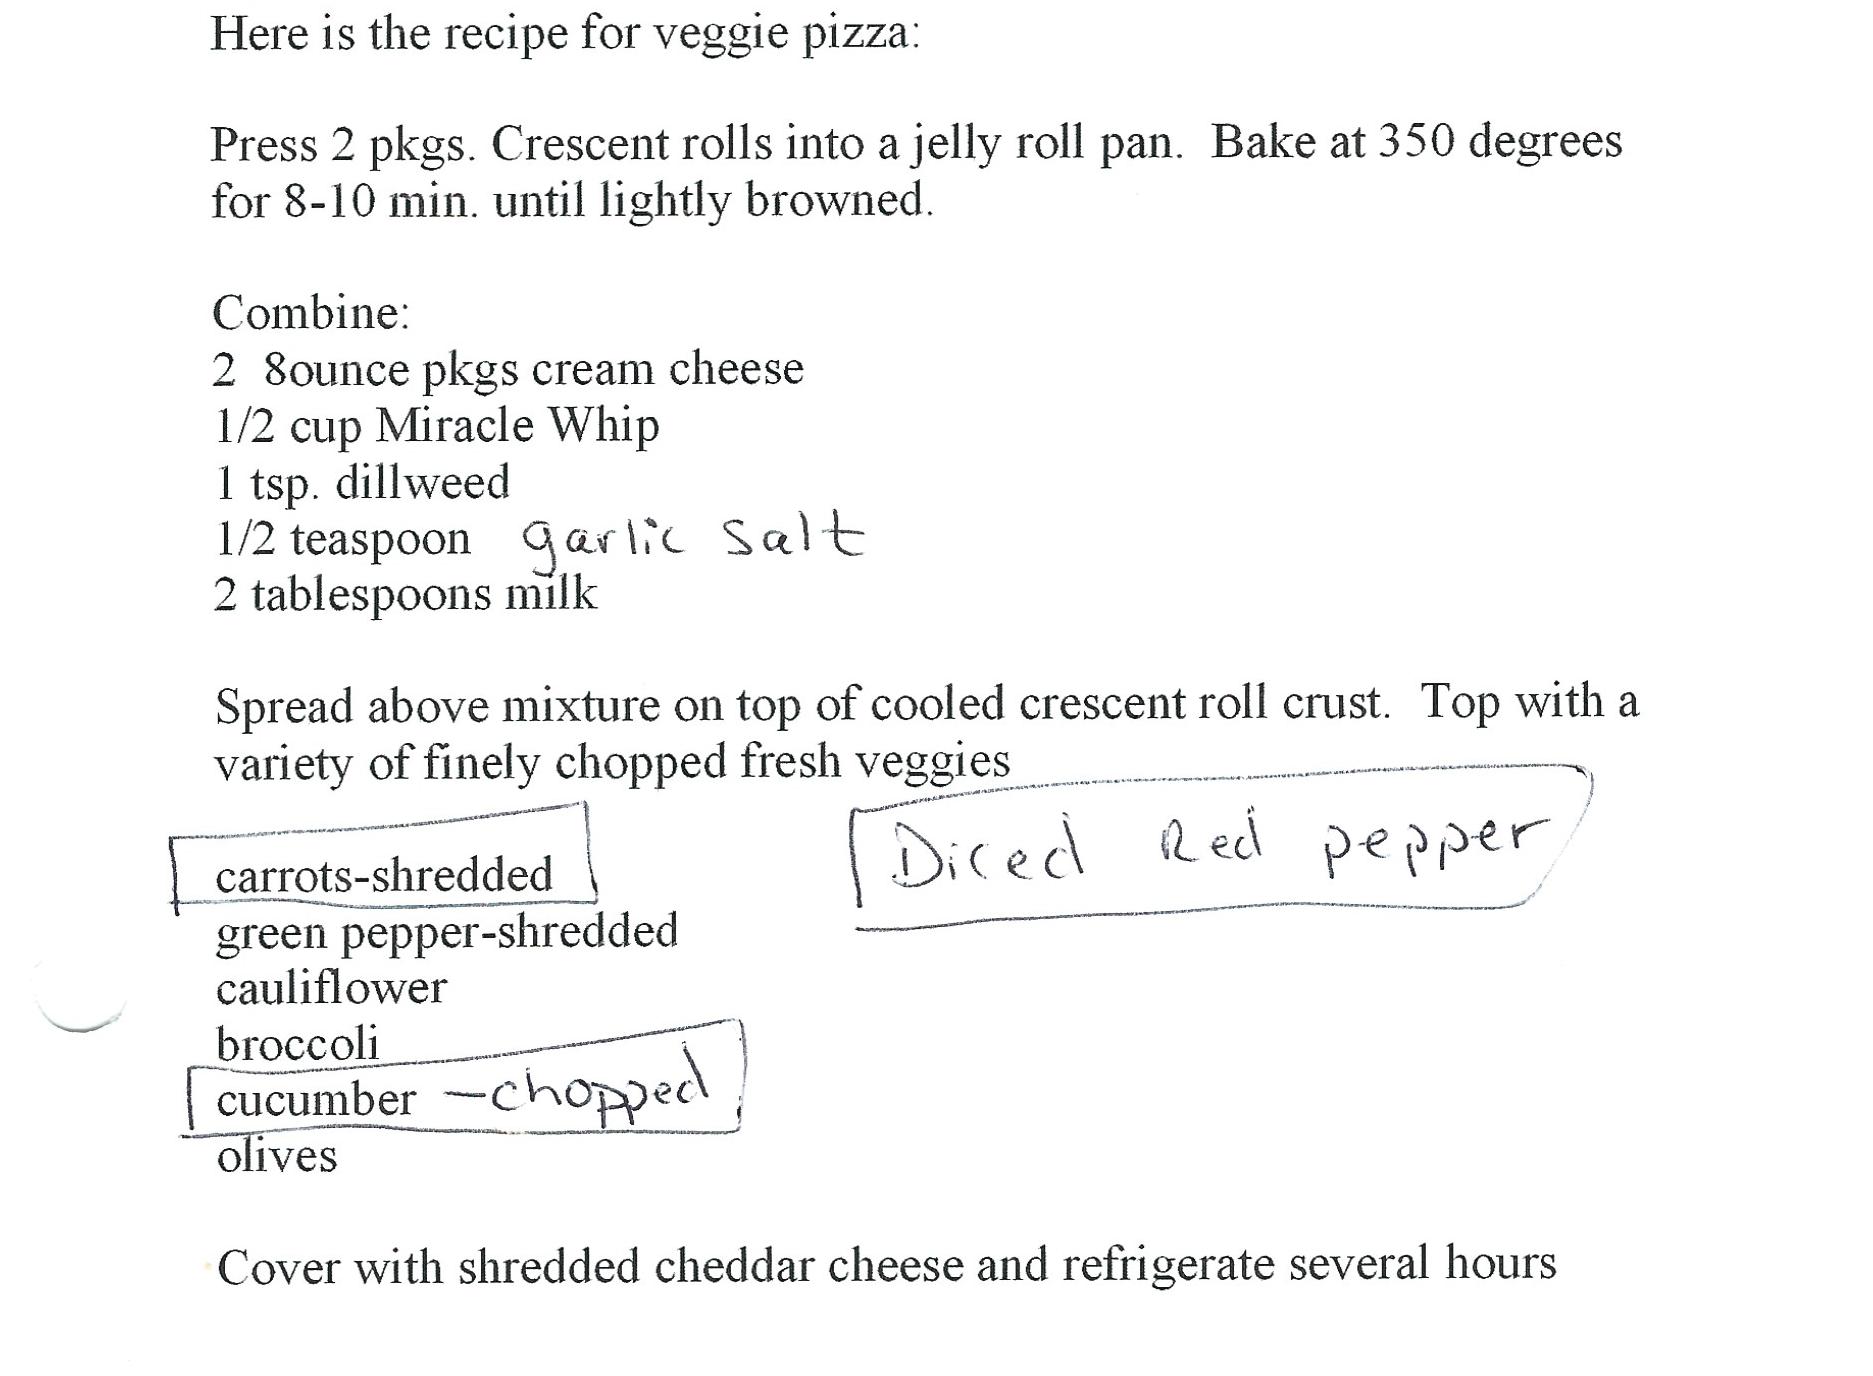 Here is the recipe for veggie pizza:
Press 2 pkgs. Crescent rolls into a jelly roll pan.  Bake at 350 degrees
for 8-10 min. until lightly browned.
Combine:
2  8ounce pkgs cream cheese
1/2 cup Miracle Whip
1 tsp. dillweed
1/2 teaspoon garlic salt
2 tablespoons milk
Spread above mixture on top of cooled crescent roll crust.  Top with a
variety of finely chopped fresh veggies
Diced Red pepper
carrots-shredded
green pepper-shredded
cauliflower
broccoli
cucumber -chopped
olives
Cover with shredded cheddar cheese and refrigerate several hours